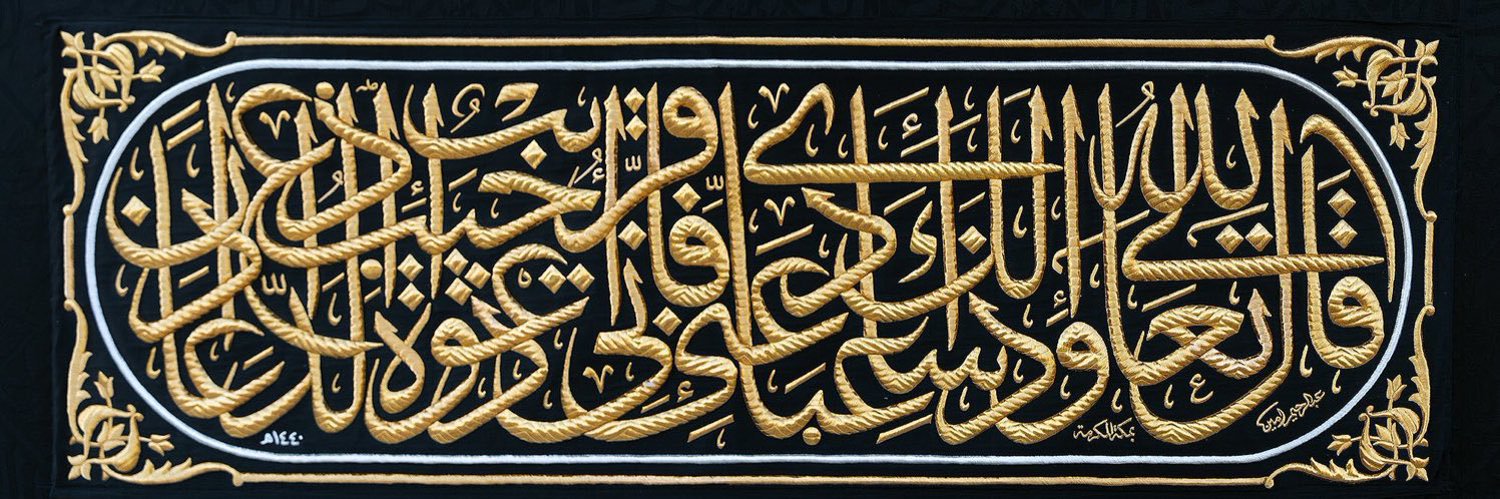 قال الله تعالى وَإِذَا سَأَلَكَ عِبَادِي عَنِّي فَإِنِّي قَرِيبٌ أُجِيبُ دَعْوَةَ الدَّاعِ إِذَا دَعَانِ
عبدالرحيم امين
بمكة المكرمة
١٤٤٠هـ